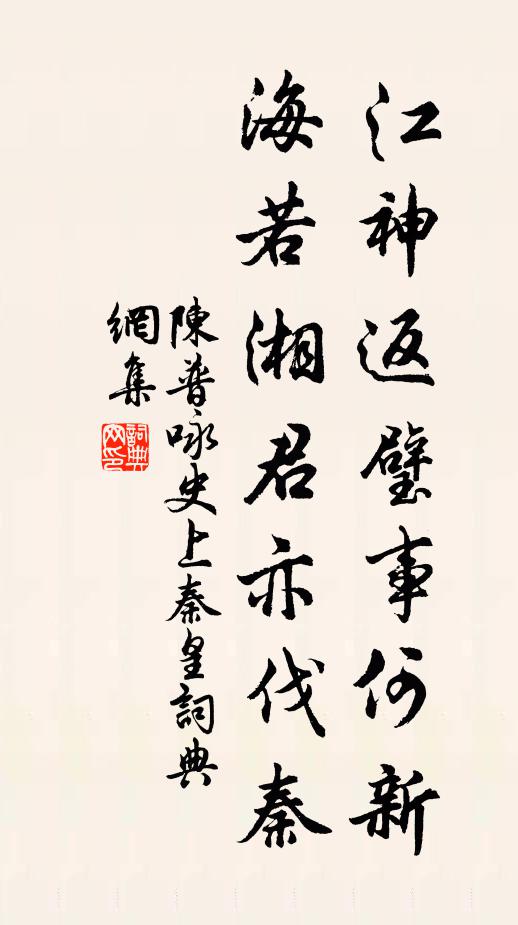 江神返璧事何新
海若湘君亦伐秦
陳普咏史上秦皇詞典
網集
詞典
网印